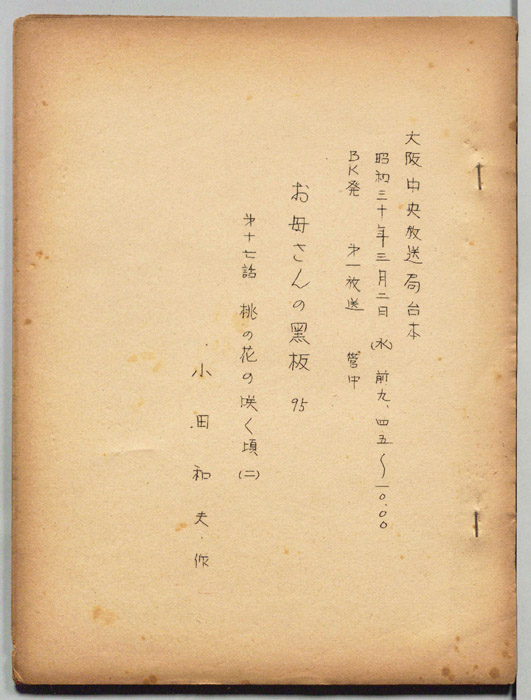 大阪中央放送局台本
昭和三十年三月二日(水) 前九、四五〜一〇、〇〇
BK発 第一放送 管中
お母さんの黑板 95
第十七話 桃の花の咲く頃(二)
小田和夫・作